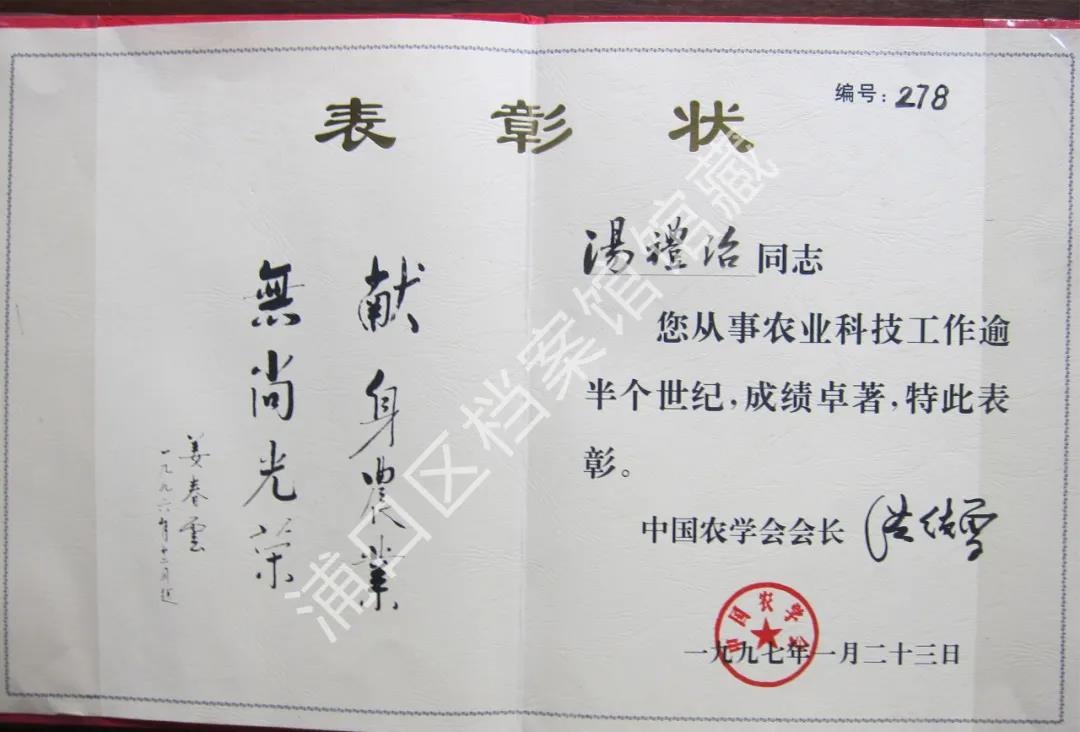 表彰状
编号：278
献身農業
無尚光荣
姜春雲
一九九六年十二月題
湯禮治同志
您从事农业科技工作逾
半个世纪，成绩卓著，特此表
彰。
中国农学会会长 洪绂曾
中国农学会
一九九七年一月二十三日
浦口区档案馆馆藏